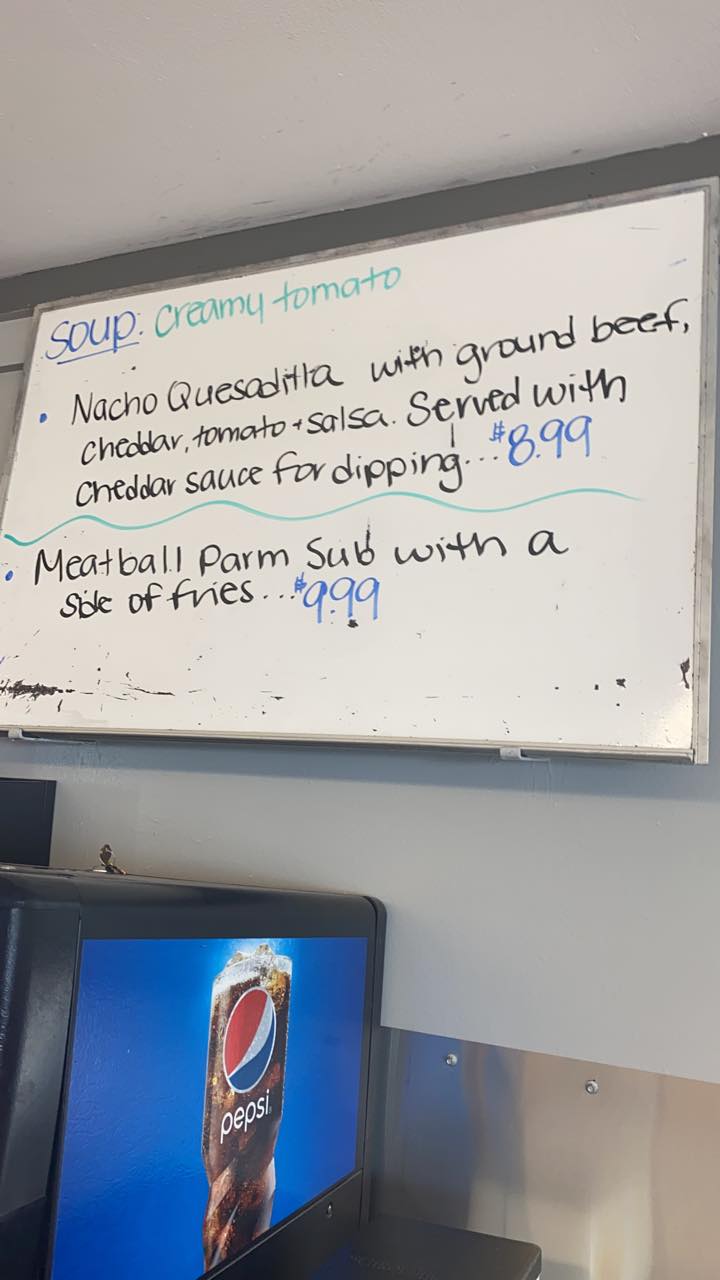 Soup: Creamy tomato
• Nacho Quesadilla with ground beef,
cheddar, tomato + salsa. Served with
Cheddar sauce for dipping... $8.99
• Meatball Parm Sub with a
side of fries... $9.99
pepsi